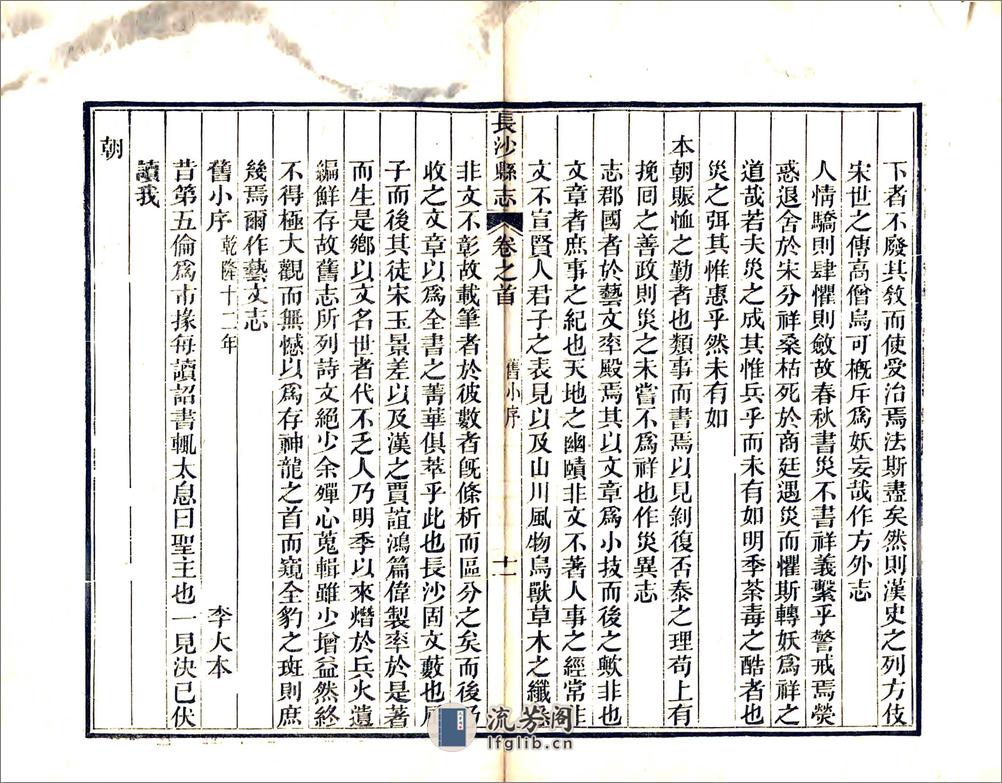 下者不廢其教而使受治焉法斯盡矣然則漢史之列方伎
宋世之傳高僧烏可概斥爲妖妄哉作方外志
人情驕則肆懼則斂故春秋書災不書祥義繫乎警戒焉熒
惑退舍於宋分祥桑枯死於商廷遇災而懼斯轉妖爲祥之
道哉若夫災之成其惟兵乎而未有如明季荼毒之酷者也
災之弭其惟惠乎然未有如
本朝賑恤之勤者也類事而書焉以見剝復否泰之理苟上有
挽囘之善政則災之未嘗不爲祥也作災異志
志郡國者於藝文率殿焉其以文章爲小技而後之歟非也
文章者庶事之紀也天地之幽賾非文不著人事之經常非
文不宣賢人君子之表見以及山川風物鳥獸草木之纖
長沙縣志 卷之首 舊小序 十一
非文不彰故載筆者於彼數者旣條析而區分之矣而後乃
收之文章以爲全書之菁華俱萃乎此也長沙固文藪也屈
子而後其徒宋玉景差以及漢之賈誼鴻篇偉製率於是著
而生是鄉以文名世者代不乏人乃明季以來燬於兵火遺
編鮮存故舊志所列詩文絕少余殫心蒐輯雖少增益然終
不得極大觀而無憾以爲存神龍之首而窺全豹之斑則庶
幾焉爾作藝文志
舊小序 乾隆十二年 李大本
昔第五倫爲市掾每讀詔書輒太息曰聖主也一見決已伏
讀我
朝
流芳阁
lfglib.cn